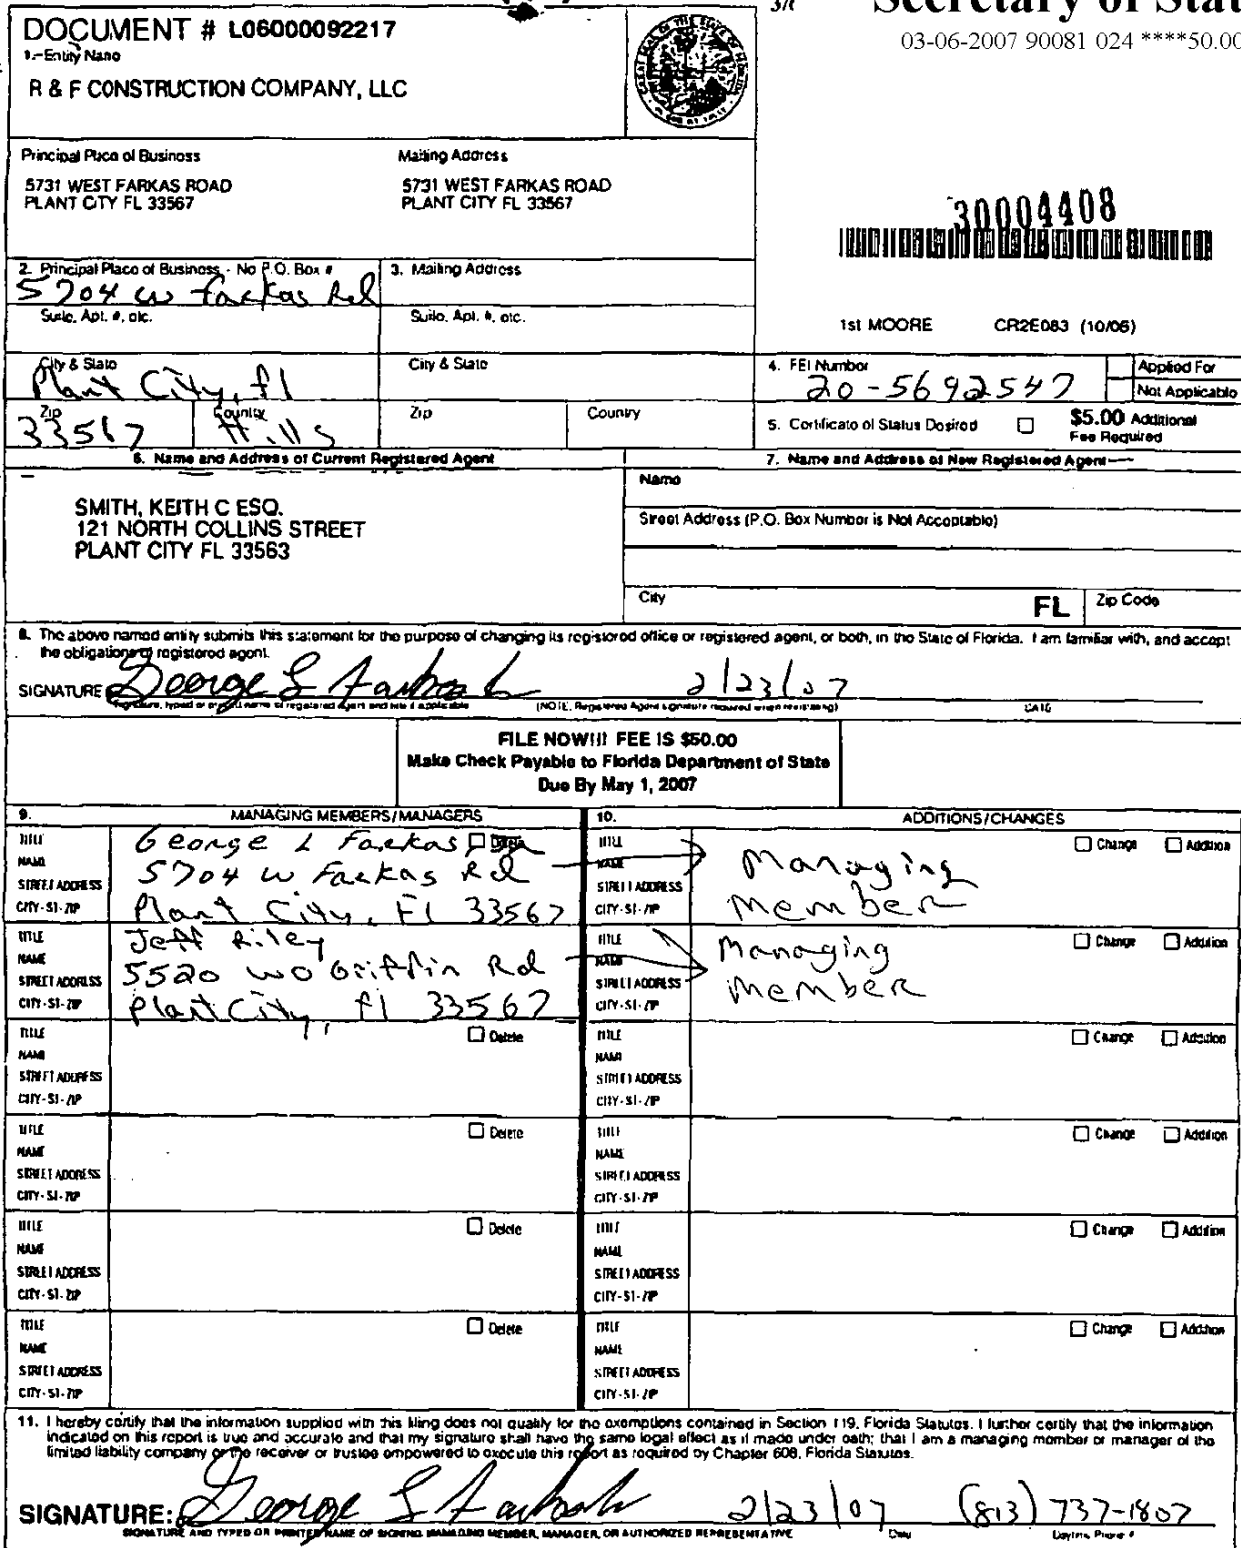 Secretary of Stat
03-06-2007 90081 024 ****50.00
DOCUMENT # L06000092217
1. Entity Name
R & F CONSTRUCTION COMPANY, LLC
Principal Place of Business
Mailing Address
5731 WEST FARKAS ROAD
PLANT CITY FL 33567
5731 WEST FARKAS ROAD
PLANT CITY FL 33567
30004408
2. Principal Place of Business - No P.O. Box #
5704 W Farkas Rd
3. Mailing Address
Suite, Apt. #, etc.
Suite, Apt. #, etc.
1st MOORE CR2E083 (10/06)
City & State
Plant City, fl
City & State
4. FEI Number
20-5692547
Applied For
Not Applicable
Zip
33567
Country
Hills
Zip
Country
5. Certificate of Status Desired
$5.00 Additional
Fee Required
6. Name and Address of Current Registered Agent
7. Name and Address of New Registered Agent
SMITH, KEITH C ESQ.
121 NORTH COLLINS STREET
PLANT CITY FL 33563
Name
Street Address (P.O. Box Number is Not Acceptable)
City
FL
Zip Code
8. The above named entity submits this statement for the purpose of changing its registered office or registered agent, or both, in the State of Florida. I am familiar with, and accept
the obligations of registered agent.
SIGNATURE George L Farkas 2/23/07
Signature, typed or printed name of registered agent and title if applicable
(NOTE: Registered Agent signature required when reinstating)
DATE
FILE NOW!!! FEE IS $50.00
Make Check Payable to Florida Department of State
Due By May 1, 2007
9. MANAGING MEMBERS/MANAGERS
10. ADDITIONS/CHANGES
TITLE
NAME
STREET ADDRESS
CITY-ST-ZIP
George L Farkas
Delete
5704 W Farkas Rd
Plant City, Fl 33567
TITLE
NAME
STREET ADDRESS
CITY-ST-ZIP
Managing
Member
Change
Addition
TITLE
NAME
STREET ADDRESS
CITY-ST-ZIP
Jeff Riley
5520 WO Griffin Rd
Plant City, fl 33567
TITLE
NAME
STREET ADDRESS
CITY-ST-ZIP
Managing
Member
Change
Addition
TITLE
NAME
STREET ADDRESS
CITY-ST-ZIP
Delete
TITLE
NAME
STREET ADDRESS
CITY-ST-ZIP
Change
Addition
TITLE
NAME
STREET ADDRESS
CITY-ST-ZIP
Delete
TITLE
NAME
STREET ADDRESS
CITY-ST-ZIP
Change
Addition
TITLE
NAME
STREET ADDRESS
CITY-ST-ZIP
Delete
TITLE
NAME
STREET ADDRESS
CITY-ST-ZIP
Change
Addition
TITLE
NAME
STREET ADDRESS
CITY-ST-ZIP
Delete
TITLE
NAME
STREET ADDRESS
CITY-ST-ZIP
Change
Addition
11. I hereby certify that the information supplied with this filing does not qualify for the exemptions contained in Section 119, Florida Statutes. I further certify that the information
indicated on this report is true and accurate and that my signature shall have the same legal effect as if made under oath; that I am a managing member or manager of the
limited liability company or the receiver or trustee empowered to execute this report as required by Chapter 608, Florida Statutes.
SIGNATURE: George L Farkas 2/23/07 (813) 737-1807
SIGNATURE AND TYPED OR PRINTED NAME OF SIGNING MANAGING MEMBER, MANAGER, OR AUTHORIZED REPRESENTATIVE
Date
Daytime Phone #